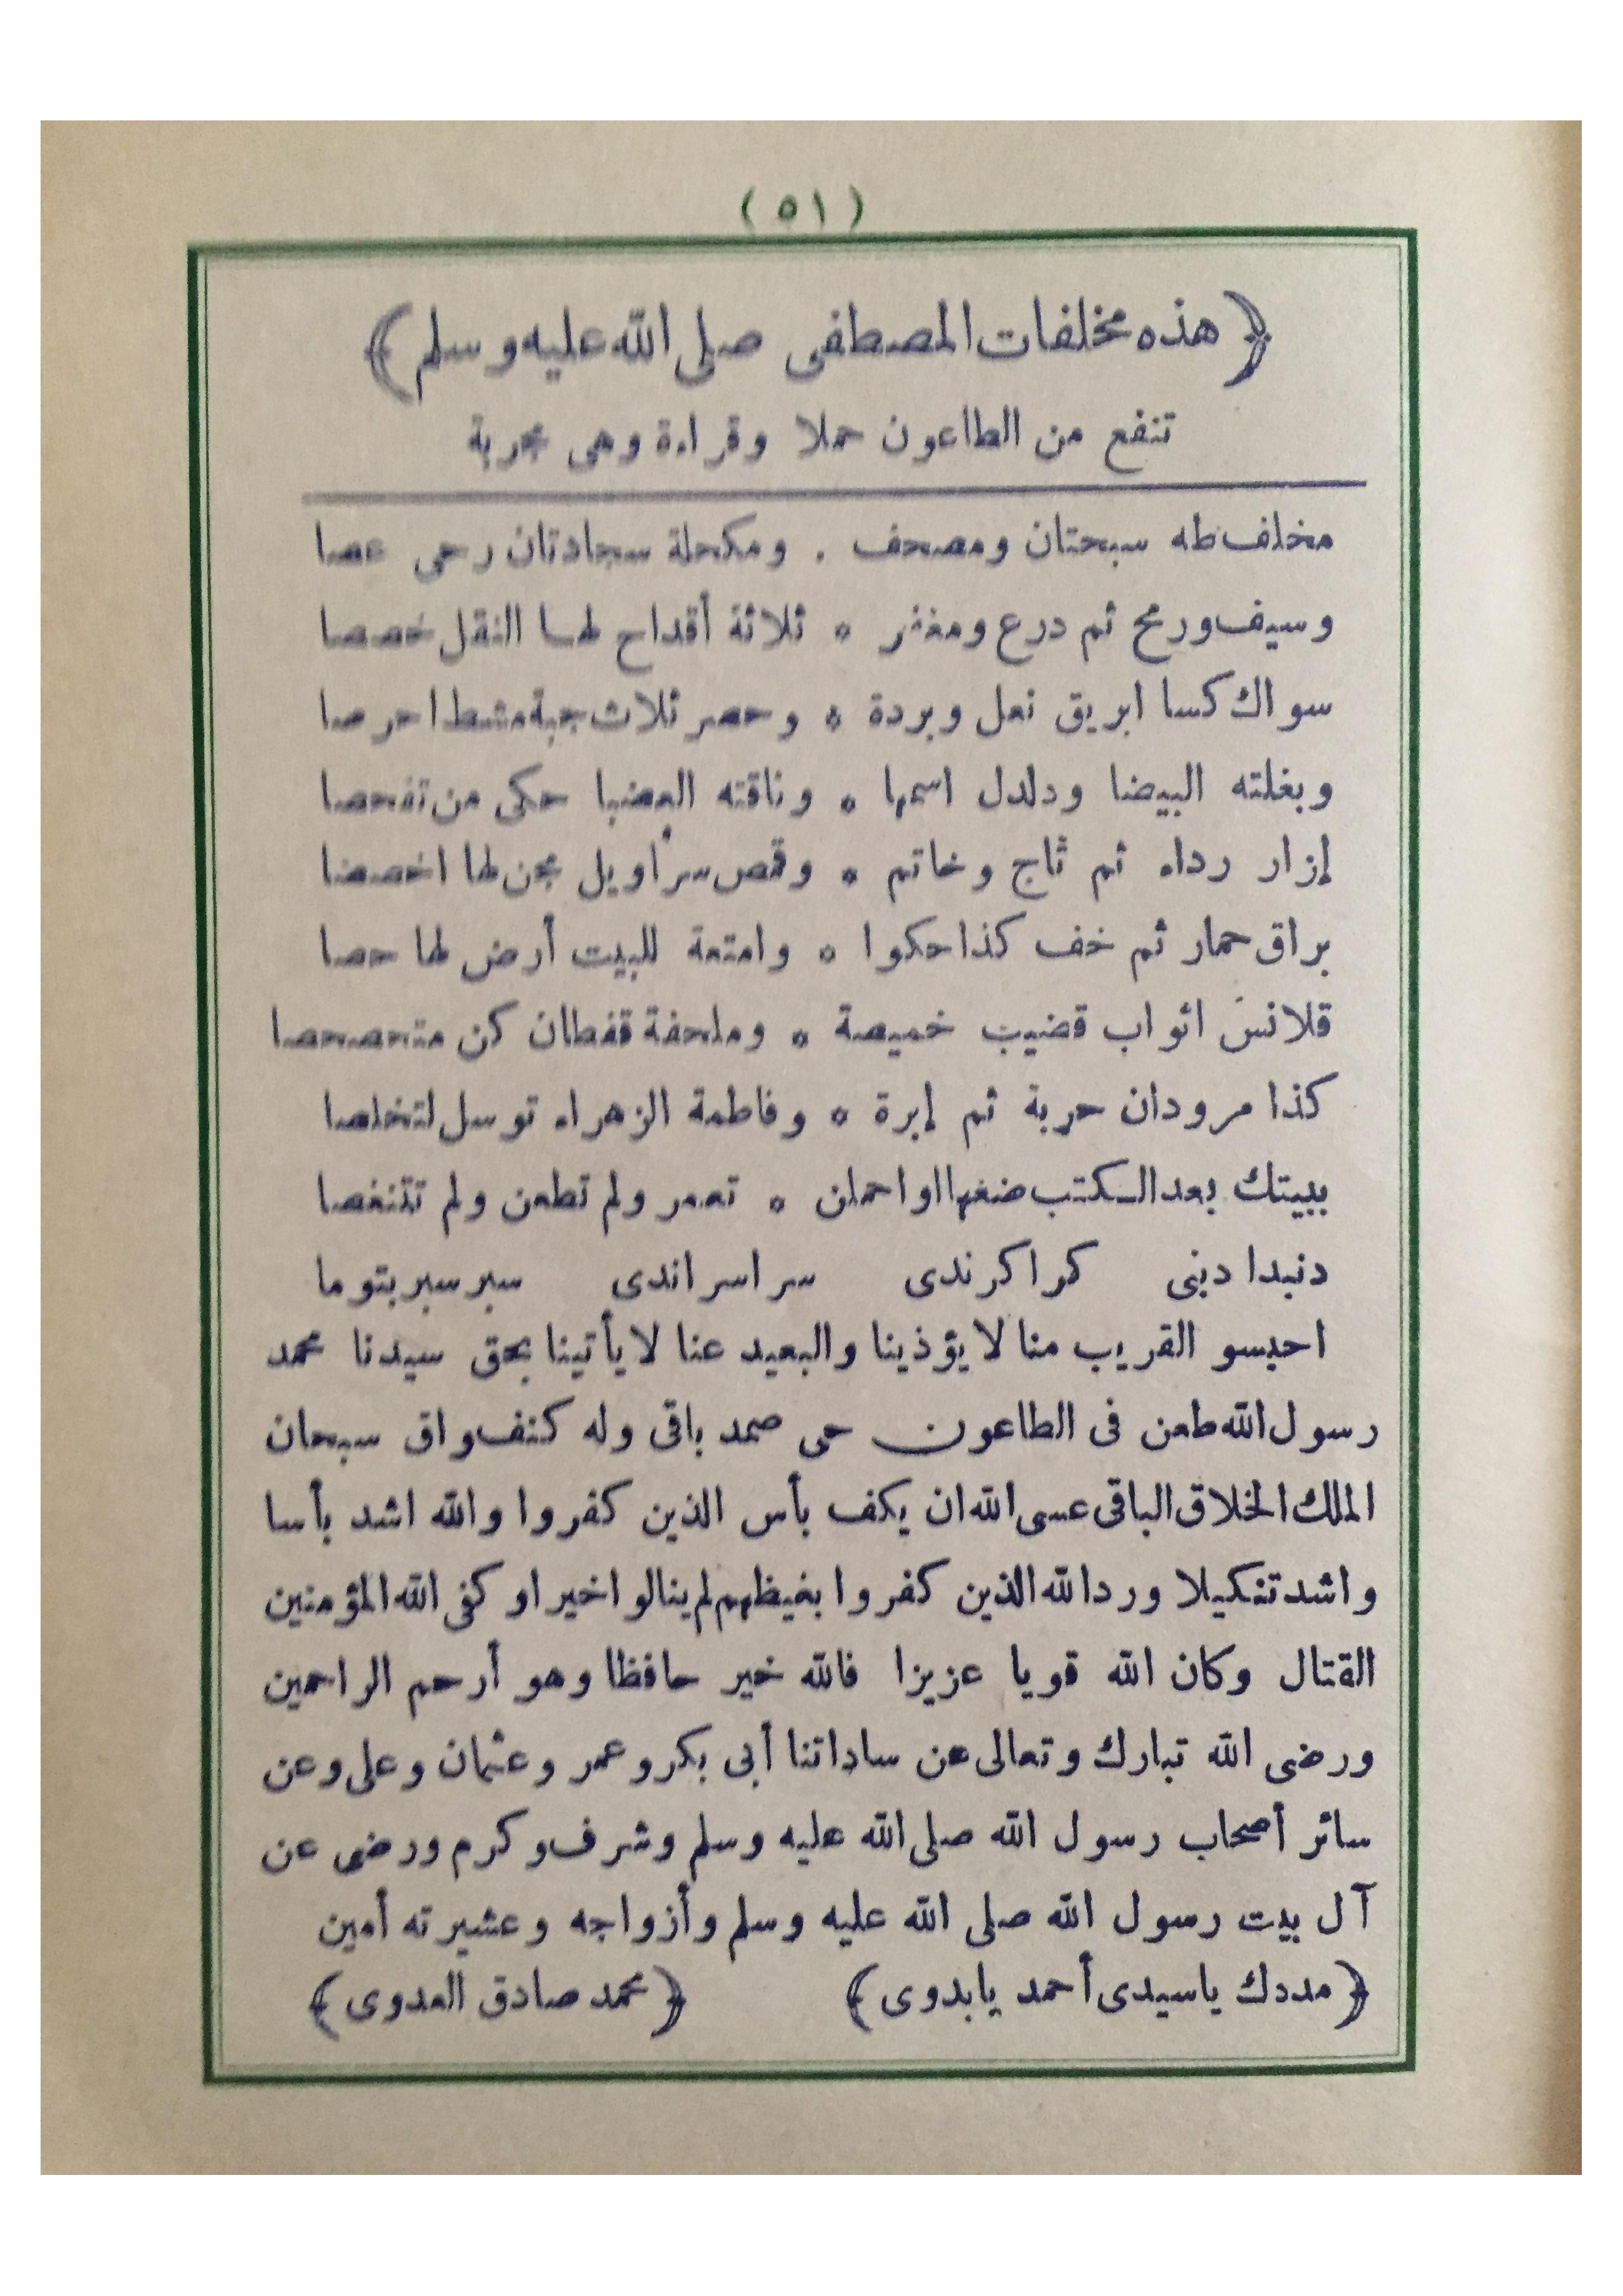 (٥١)
﴿هذه مخلفات المصطفى صلى الله عليه وسلم﴾
تنفع من الطاعون حملا وقراءة وهى مجربة
مخلف طه سبحتان ومصحف . ومكحلة سجادتان رحى عصا
وسيف ورمح ثم درع ومغفر ۰ ثلاثة أقداح لها النقل خصصا
سواك كسا ابريق نعل وبردة ۰ وحصر ثلاث جبة مشط احرصا
وبغلته البيضا ودلدل اسمها ۰ وناقته العضبا حكى من تفحصا
إزار رداء ثم تاج وخاتم ۰ وقمص سرأويل مجن لها اخصصا
براق حمار ثم خف كذا حكوا ۰ وامتعة للبيت أرض لها حصا
قلانس اثواب قضيب خميصة ۰ وملحفة قفطان كن متحصحصا
كذا مرودان حربة ثم إبرة ۰ وفاطمة الزهراء توسل لتخلصا
ببيتك بعد الكتب ضغها او احملن ۰ تعمر ولم تطعن ولم تتنغصا
دنبدا دبنى كرا كرندى سراسراندى سبر سبر بتوما
احبسو القريب منا لا يؤذينا والبعيد عنا لا يأتينا بحق سيدنا محمد
رسول الله طعن فى الطاعون حى صمد باقى وله كنف واق سبحان
الملك الخلاق الباقى عسى الله ان يكف بأس الذين كفروا والله اشد بأسا
واشد تنكيلا ورد الله الذين كفروا بغيظهم لم ينالوا خيرا وكفى الله المؤمنين
القتال وكان الله قويا عزيزا فالله خير حافظا وهو أرحم الراحمين
ورضى الله تبارك وتعالى عن ساداتنا أبى بكر وعمر وعثمان وعلى وعن
سائر أصحاب رسول الله صلى الله عليه وسلم وشرف وكرم ورضى عن
آل بيت رسول الله صلى الله عليه وسلم وأزواجه وعشيرته أمين
﴿مددك ياسيدى أحمد يابدوى﴾ ﴿محمد صادق العدوى﴾